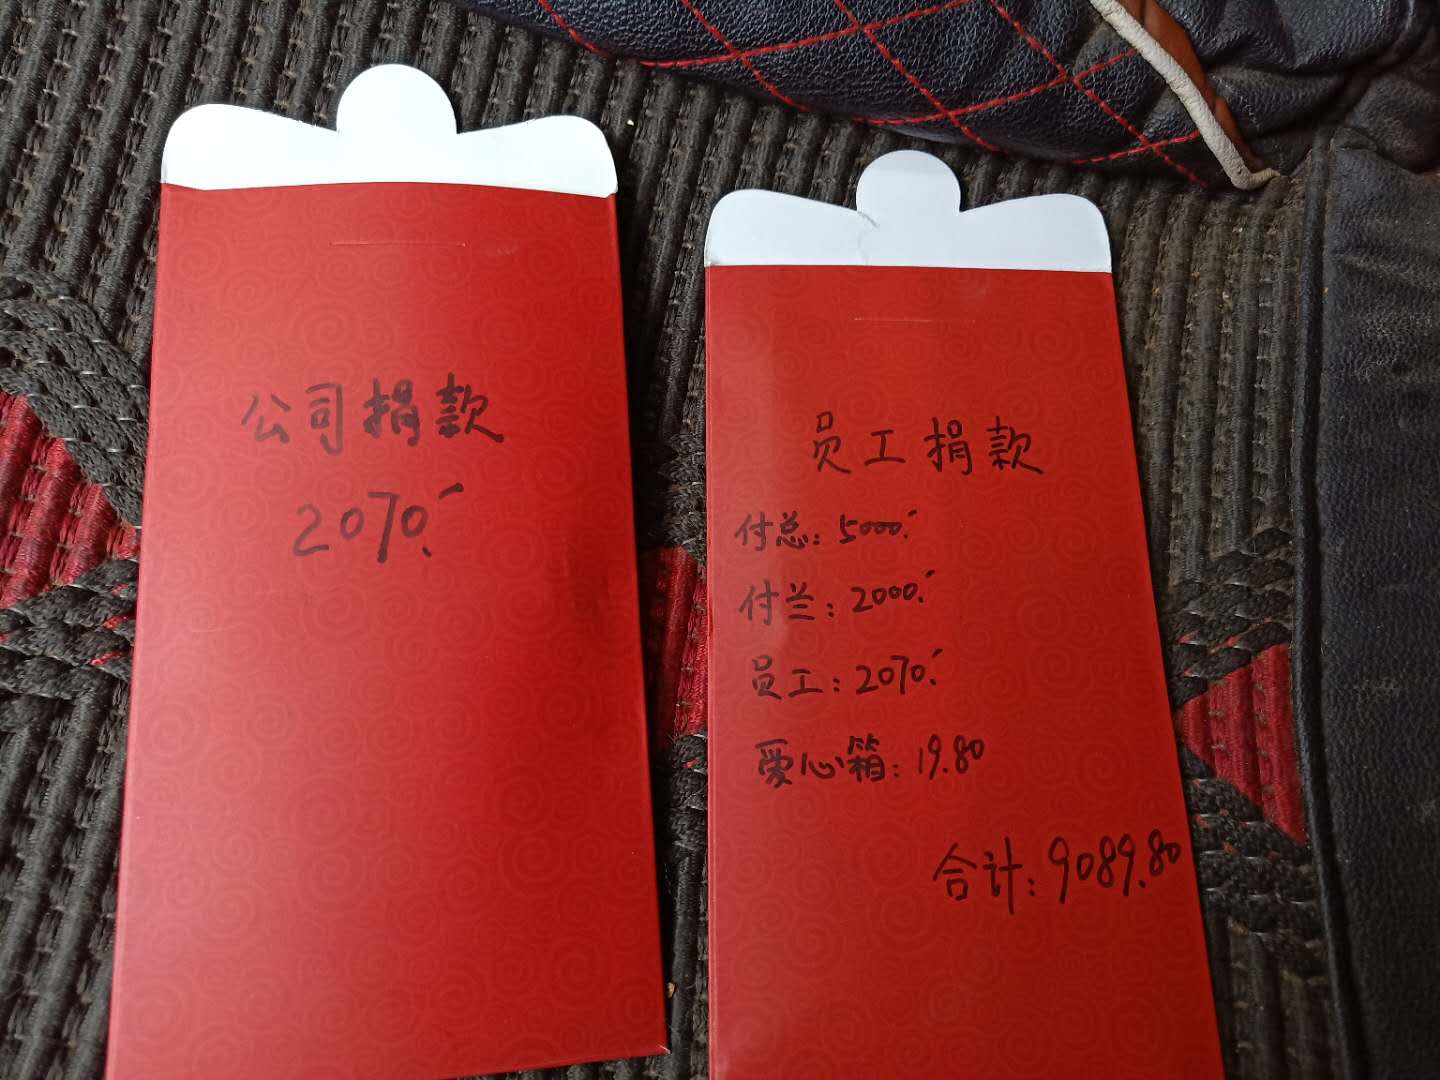 公司捐款
2070.
员工捐款
付总: 5000.
付兰: 2000.
员工: 2070.
爱心箱: 19.80
合计: 9089.80